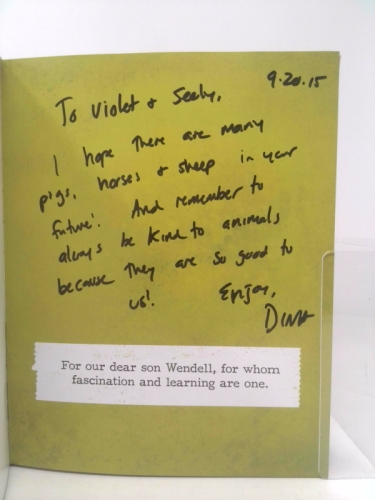 9.20.15
To Violet & Seely,
I hope there are many
pigs, horses & sheep in your
future! And remember to
always be kind to animals
because they are so good to
us!
Enjoy,
DINA
For our dear son Wendell, for whom
fascination and learning are one.